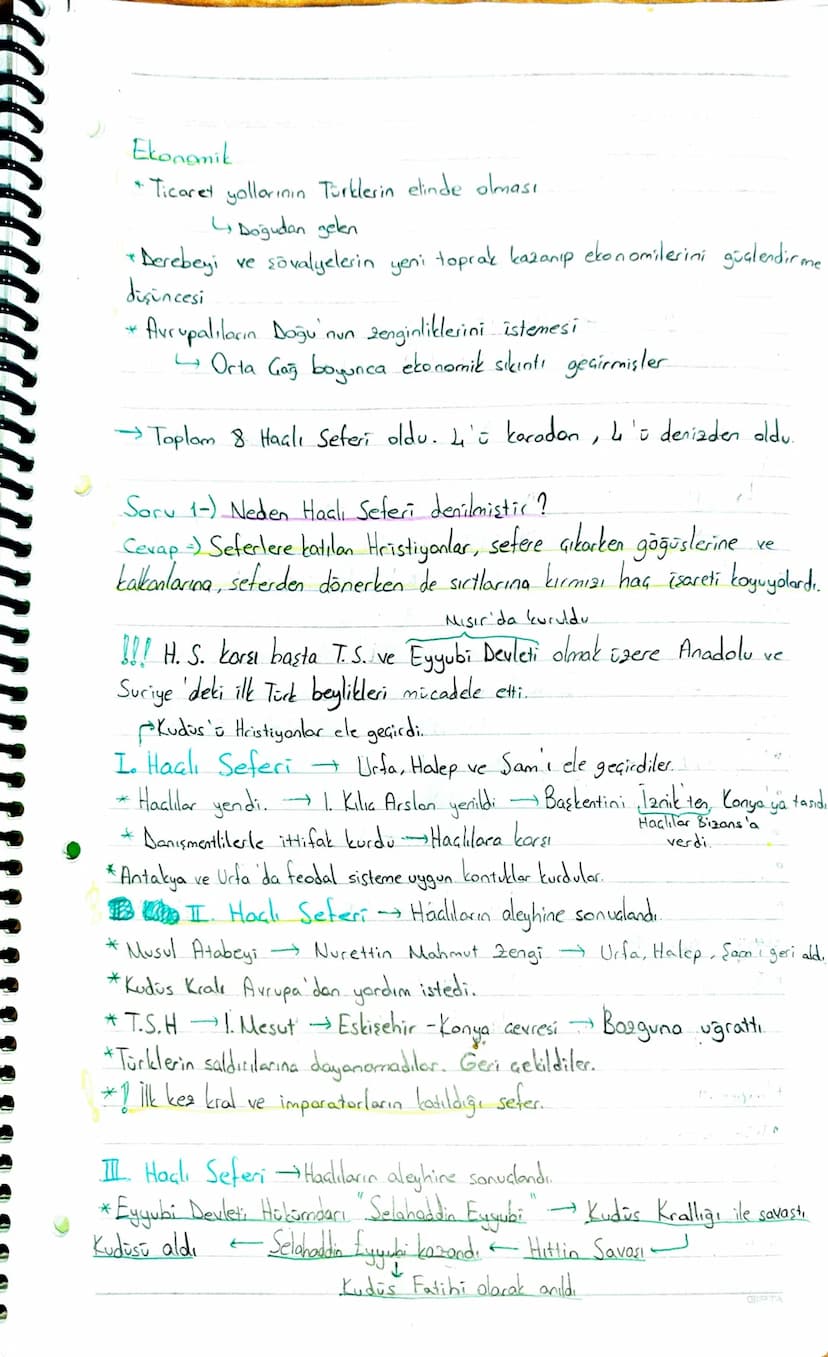 Ekonomik
* Ticaret yollarının Türklerin elinde olması
↳ Doğudan gelen
* Derebeyi ve şövalyelerin yeni toprak kazanıp ekonomilerini güçlendirme
düşüncesi
* Avrupalıların Doğu'nun zenginliklerini istemesi
↳ Orta Çağ boyunca ekonomik sıkıntı geçirmişler
→ Toplam 8 Haçlı Seferi oldu. 4'ü karadan, 4'ü denizden oldu.
Soru 1-) Neden Haçlı Seferi denilmiştir?
Cevap =) Seferlere katılan Hristiyanlar, sefere çıkarken göğüslerine ve
kalkanlarına, seferden dönerken de sırtlarına kırmızı haç işareti koyuyolardı.
Mısır'da kuruldu
!!! H. S. karşı başta T.S. ve Eyyubi Devleti olmak üzere Anadolu ve
Suriye'deki ilk Türk beylikleri mücadele etti.
↱ Kudüs'ü Hristiyanlar ele geçirdi.
I. Haçlı Seferi → Urfa, Halep ve Şam'ı ele geçirdiler.
* Haçlılar yendi. → I. Kılıç Arslan yenildi → Başkentini İznik'ten, Konya'ya taşıdı
Haçlılar Bizans'a
verdi.
* Danışmentlilerle ittifak kurdu → Haçlılara karşı
* Antakya ve Urfa'da feodal sisteme uygun kontluklar kurdular.
II. Haçlı Seferi → Haçlıların aleyhine sonuçlandı.
* Musul Atabeyi → Nurettin Mahmut Zengi → Urfa, Halep, Şam'ı geri aldı.
* Kudüs Kralı Avrupa'dan yardım istedi.
* T.S.H → I. Mesut → Eskişehir - Konya çevresi → Bozguna uğrattı
* Türklerin saldırılarına dayanamadılar. Geri çekildiler.
*! İlk kez kral ve imparatorların katıldığı sefer.
III. Haçlı Seferi → Haçlıların aleyhine sonuçlandı.
* Eyyubi Devleti Hükümdarı "Selahaddin Eyyubi" → Kudüs Krallığı ile savaştı
Kudüsü aldı ← Selahaddin Eyyubi kazandı ← Hıttin Savaşı
↓
Kudüs Fatihi olarak anıldı